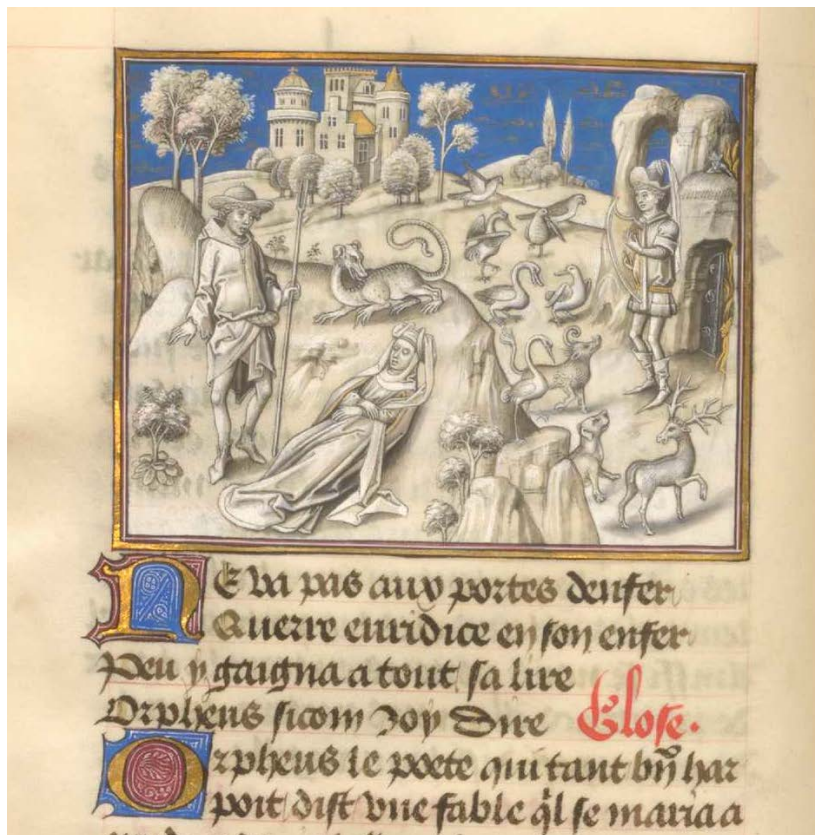 NE va pas aux portes denfer
Querre euridice en son enfer
Peu y gaigna a tout sa lire
Orpheus sicom joy dire Glose.
Orpheus le poete qui tant bn̄ har
poit dist vne fable q̄l se maria a